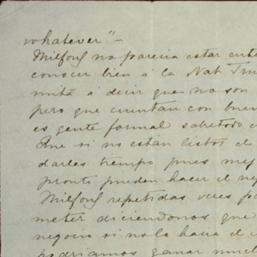 whatever"—
Milford no parecia estar ente
conocer bien á la Nat Trus
mitó á decir que no son
pero que cuentan con buen
es gente formal sobretodo
Que si no estan listos de
darles tiempo pues muy
pronto pueden hacer el neg
Milford repetidas veces
meter diciendonos que
negocio si no lo hacia el
podriamos ganar much